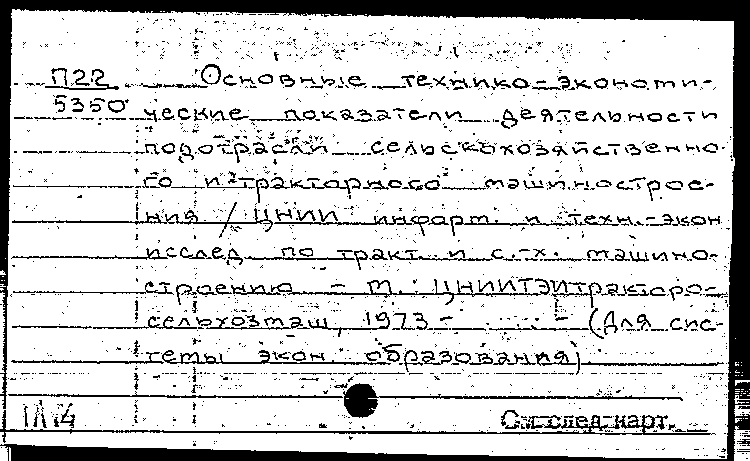 П22 Основные технико-экономи-
5350 ческие показатели деятельности
подотрасли сельскохозяйственно-
го и тракторного машинострое-
ния / ЦНИИ информ. и техн.-экон
исслед по тракт и с.-х. машино-
строению - М.: ЦНИИТЭИтракторо-
сельхозмаш, 1973 - - (Для сис-
темы экон образования)
См. след. карт.